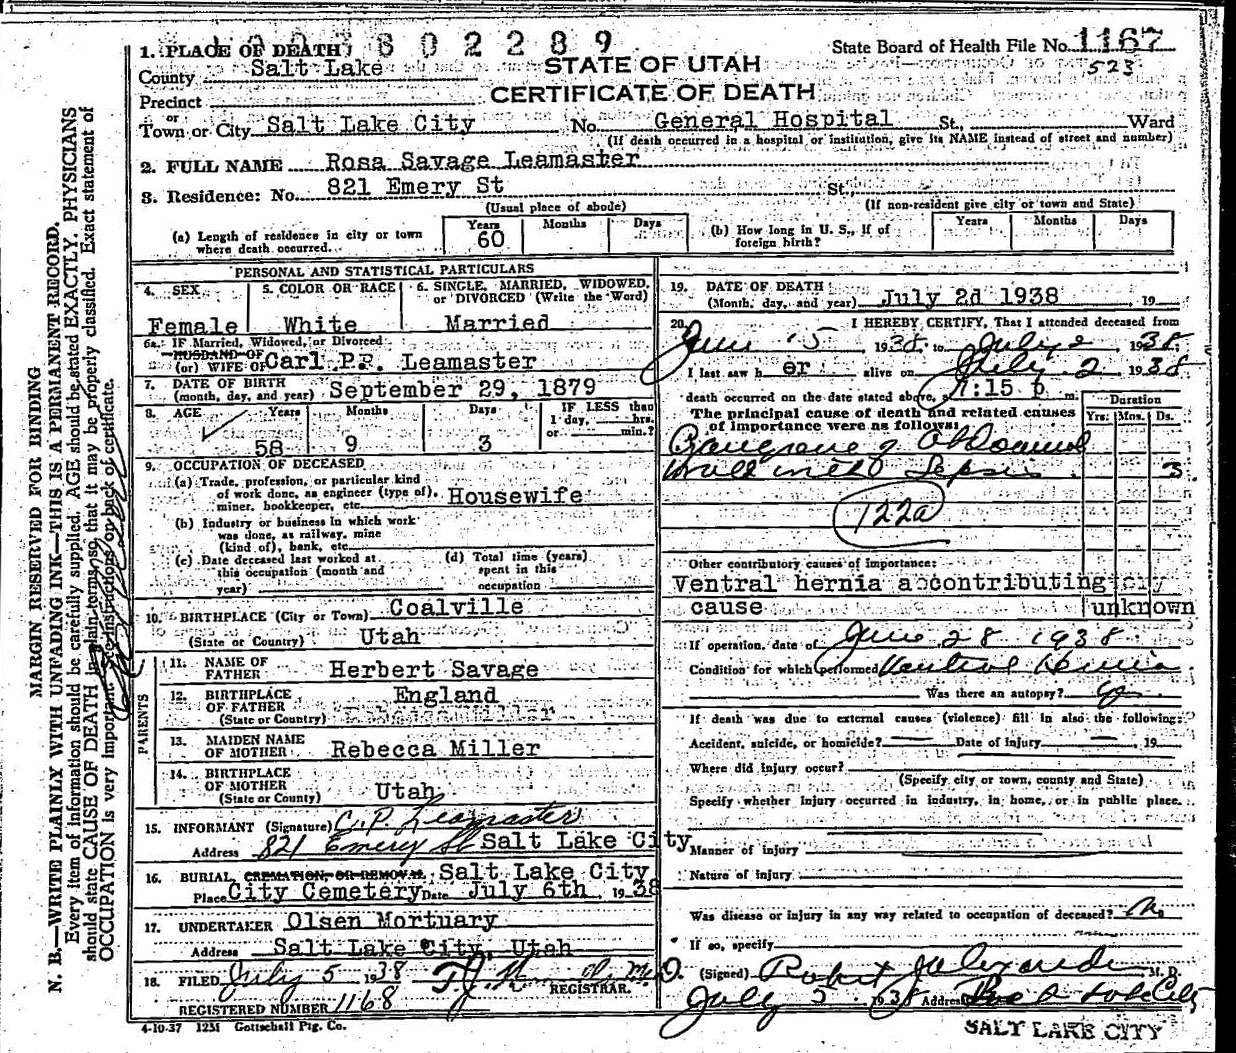 1. PLACE OF DEATH 802289
State Board of Health File No. 1167
523
County Salt Lake
STATE OF UTAH
CERTIFICATE OF DEATH
Precinct
or
Town or City Salt Lake City No. General Hospital St., Ward
(If death occurred in a hospital or institution, give its NAME instead of street and number)
2. FULL NAME Rosa Savage Leamaster
3. Residence: No. 821 Emery St St.,
(Usual place of abode) (If non-resident give city or town and State)
(a) Length of residence in city or town where death occurred Years 60 Months Days
(b) How long in U. S., if of foreign birth? Years Months Days
PERSONAL AND STATISTICAL PARTICULARS
4. SEX Female
5. COLOR OR RACE White
6. SINGLE, MARRIED, WIDOWED, or DIVORCED (Write the Word) Married
6a. IF Married, Widowed, or Divorced
HUSBAND OF
(or) WIFE OF Carl P. Leamaster
7. DATE OF BIRTH
(month, day, and year) September 29, 1879
8. AGE Years 58 Months 9 Days 3 IF LESS than 1 day, hrs. or min.?
9. OCCUPATION OF DECEASED
(a) Trade, profession, or particular kind
of work done, as engineer (type of),
miner, bookkeeper, etc. Housewife
(b) Industry or business in which work
was done, as railway, mine
(kind of), bank, etc.
(c) Date deceased last worked at
this occupation (month and
year)
(d) Total time (years)
spent in this
occupation
10. BIRTHPLACE (City or Town) Coalville
(State or Country) Utah
PARENTS
11. NAME OF FATHER Herbert Savage
12. BIRTHPLACE OF FATHER
(State or Country) England
13. MAIDEN NAME OF MOTHER Rebecca Miller
14. BIRTHPLACE OF MOTHER
(State or Country) Utah
15. INFORMANT (Signature) C. P. Leamaster
Address 821 Emery St Salt Lake City
16. BURIAL, CREMATION, OR REMOVAL Salt Lake City
Place City Cemetery Date July 6th, 1938
17. UNDERTAKER Olsen Mortuary
Address Salt Lake City, Utah
18. FILED July 5 1938
REGISTRAR.
REGISTERED NUMBER 1168
4-10-37 12M Gottschall Ptg. Co.
19. DATE OF DEATH
(Month, day, and year) July 2d 1938 , 19
20. I HEREBY CERTIFY, That I attended deceased from
June 15 1938, to July 2 1938
I last saw her alive on July 2 1938
death occurred on the date stated above, 7:15 p m.
Duration
The principal cause of death and related causes
of importance were as follows: Yrs. Mos. Ds.
Gangrene of Abdominal
wall with Sepsis 3
122a
Other contributory causes of importance:
Ventral hernia a contributing
cause unknown
If operation, date of June 28 1938
Condition for which performed Ventral Hernia
Was there an autopsy?
If death was due to external causes (violence) fill in also the following:
Accident, suicide, or homicide? — Date of injury — , 19
Where did injury occur?
(Specify city or town, county and State)
Specify whether injury occurred in industry, in home, or in public place.
Manner of injury
Nature of injury
Was disease or injury in any way related to occupation of deceased? No
If so, specify
(Signed) Robert Alexander M. D.
July 5 1938 Address
SALT LAKE CITY
MARGIN RESERVED FOR BINDING
N. B.—WRITE PLAINLY WITH UNFADING INK—THIS IS A PERMANENT RECORD.
Every item of information should be carefully supplied. AGE should be stated EXACTLY. PHYSICIANS
should state CAUSE OF DEATH in plain terms, so that it may be properly classified. Exact statement of
OCCUPATION is very important. See instructions on back of certificate.